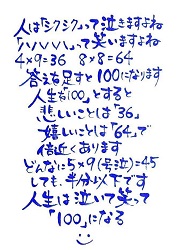 人は「シクシク」って泣きますよね
「ハハハハ」って笑いますよね
4×9=36 8×8=64
答えを足すと100になります
人生を「100」とすると
悲しいことは「36」
嬉しいことは「64」で
倍近くあります
どんなに5×9(号泣)=45
しても、半分以下です
人生は泣いて笑って
「100」になる